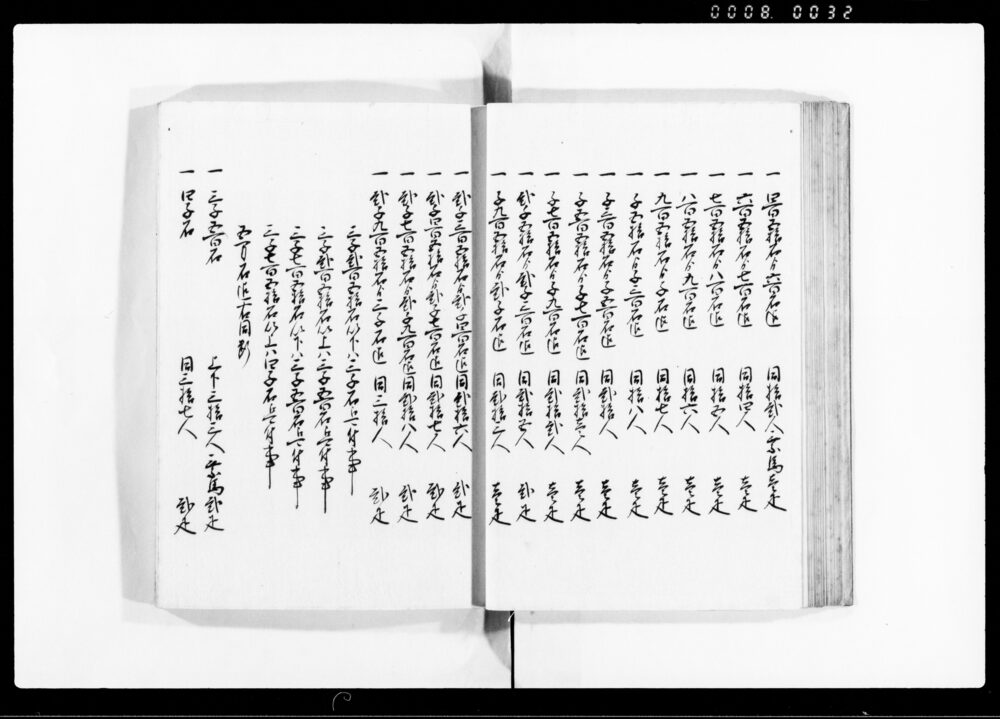 0008 0032
一 四百五拾石ゟ六百石迄 同拾弐人 乗馬壱疋
一 六百五拾石ゟ七百石迄 同拾四人 壱疋
一 七百五拾石ゟ八百石迄 同拾五人 壱疋
一 八百五拾石ゟ九百石迄 同拾六人 壱疋
一 九百五拾石ゟ千石迄 同拾七人 壱疋
一 千五拾石ゟ千三百石迄 同拾八人 壱疋
一 千三百五拾石ゟ千五百石迄 同弐拾人 壱疋
一 千五百五拾石ゟ千七百石迄 同弐拾壱人 壱疋
一 千七百五拾石ゟ千九百石迄 同弐拾弐人 壱疋
一 弐千五拾石ゟ弐千三百石迄 同弐拾五人 弐疋
一 千九百五拾石ゟ弐千石迄 同弐拾三人 壱疋
一 弐千三百五拾石ゟ弐千四百石迄 同弐拾六人 弐疋
一 弐千四百五拾石ゟ弐千七百石迄 同弐拾七人 弐疋
一 弐千七百五拾石ゟ弐千九百石迄 同弐拾八人 弐疋
一 弐千九百五拾石ゟ三千石迄 同三拾人 弐疋
三千弐百五拾石以下ハ三千石之人付事
三千弐百五拾石以上ハ三千五百石之人付事
三千七百五拾石以下ハ三千五百石之人付事
三千七百五拾石以上ハ四千石之人付事
五万石迄右同断
一 三千五百石 上下三拾三人 乗馬弐疋
一 四千石 同三拾七人 弐疋